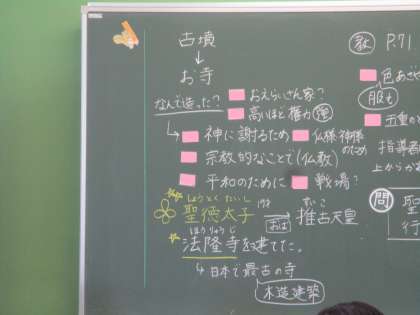 古墳
↓
お寺
なんで造った?
おえらいさん家?
高いほど権力 強
神に謝るため
仏様神様のため
宗教的なことで(仏教)
平和のために
戦場?
しょうとくたいし
聖徳太子
おば
すいこ
推古天皇
ほうりゅうじ
法隆寺を建てた。
↳日本で最古の寺
木造建築
教 P.71
色あざや
服も
五重の
指導者
上からか
問
聖
行